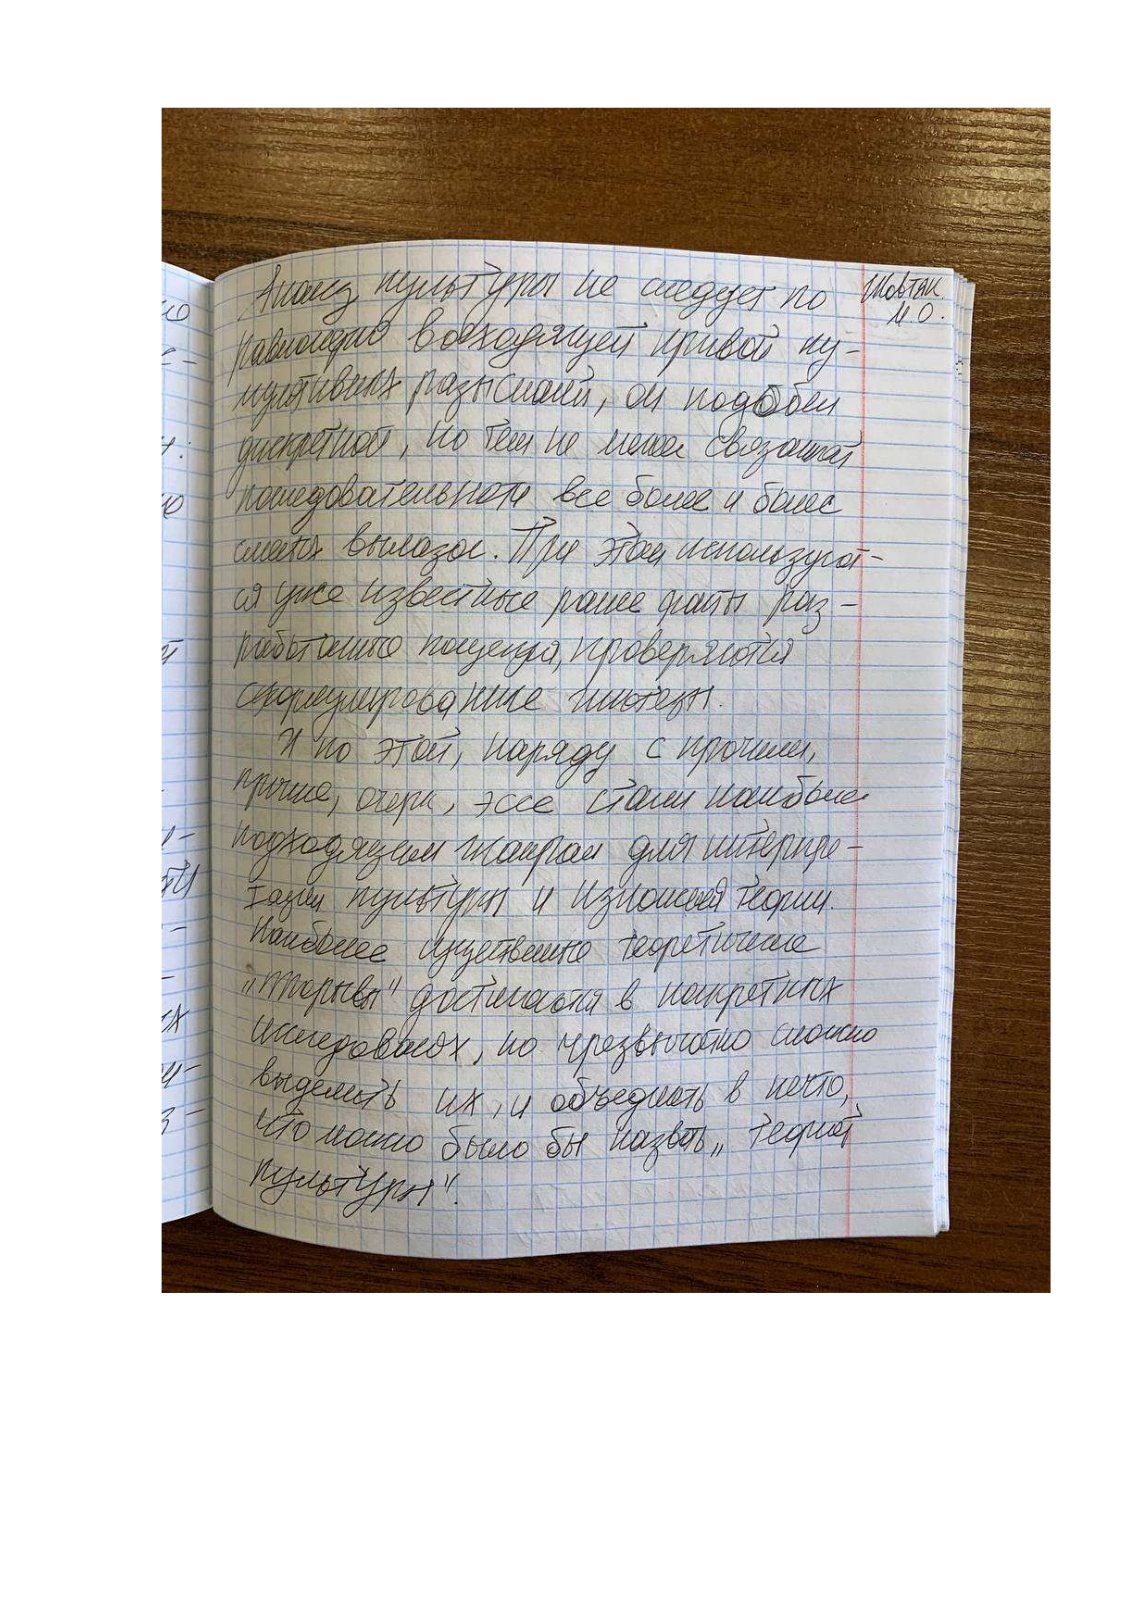 Анализ культуры не следует по
равномерно восходящей кривой ку-
мулятивных разысканий, он подобен
дискретной, но тем не менее связанной
последовательности все более и более
смелых вылазок. При этом используют-
ся уже известные ранее факты раз-
работанные проверяются
сформулированные гипотезы.
И по этой, наряду с прочими,
причине, очерк, эссе стали наиболее
подходящим жанром для интерпре-
тации культуры и теории.
Наиболее существенно теоретические
„прорывы" достигаются в конкретных
исследованиях, но чрезвычайно сложно
выделить их, и объединить в нечто,
что можно было бы назвать „теорией
культуры".
М О.